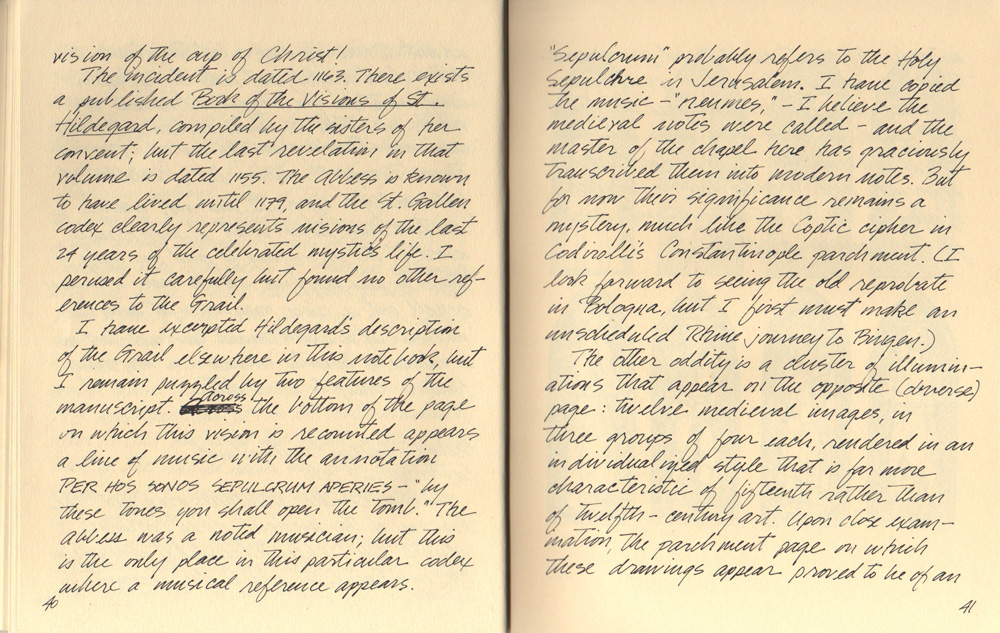 vision of the cup of Christ!
The incident is dated 1163. There exists
a published Book of the Visions of St.
Hildegard, compiled by the sisters of her
convent; but the last revelation in that
volume is dated 1155. The Abbess is known
to have lived until 1179, and the St. Gallen
codex clearly represents visions of the last
24 years of the celebrated mystic's life. I
perused it carefully but found no other ref-
erences to the Grail.
I have excerpted Hildegard's description
of the Grail elsewhere in this notebook, but
I remain puzzled by two features of the
manuscript. Across the bottom of the page
on which this vision is recounted appears
a line of music with the annotation
PER HOS SONOS SEPULCRUM APERIES – "by
these tones you shall open the tomb." The
abbess was a noted musician; but this
is the only place in this particular codex
where a musical reference appears.
40
"Sepulcrum" probably refers to the Holy
Sepulchre in Jerusalem. I have copied
the music – "neumes," – I believe the
medieval notes were called – and the
master of the chapel here has graciously
transcribed them into modern notes. But
for now their significance remains a
mystery, much like the Coptic cipher in
Codirolli's Constantinople parchment. (I
look forward to seeing the old reprobate
in Bologna, but I first must make an
unscheduled Rhine journey to Bingen.)
The other oddity is a cluster of illumin-
ations that appear on the opposite (dverse)
page: twelve medieval images, in
three groups of four each, rendered in an
individualized style that is far more
characteristic of fifteenth rather than
of twelfth-century art. Upon close exam-
ination, the parchment page on which
these drawings appear proved to be of an
41